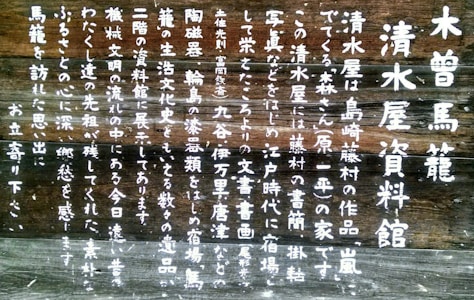 木曽馬籠
清水屋資料館
清水屋は島崎藤村の作品「嵐」に
でてくる「森さん」(原一平)の家です
この清水屋には藤村の書簡、掛軸
写真などをはじめ江戸時代に「宿場」と
して栄えたころよりの文書・書画
九谷・伊万里・唐津などの
陶磁器、輪島の漆器類をはじめ宿場「馬
籠の生活文化史をもいえる数々の遺品が
二階の資料館に展示してあります
機械文明の流れの中にある今日 遠い昔を
わたくし達の先祖が残してくれた、素朴な
ふるさとの心に深い郷愁を感じます
馬籠を訪れた思い出に
お立寄り下さい